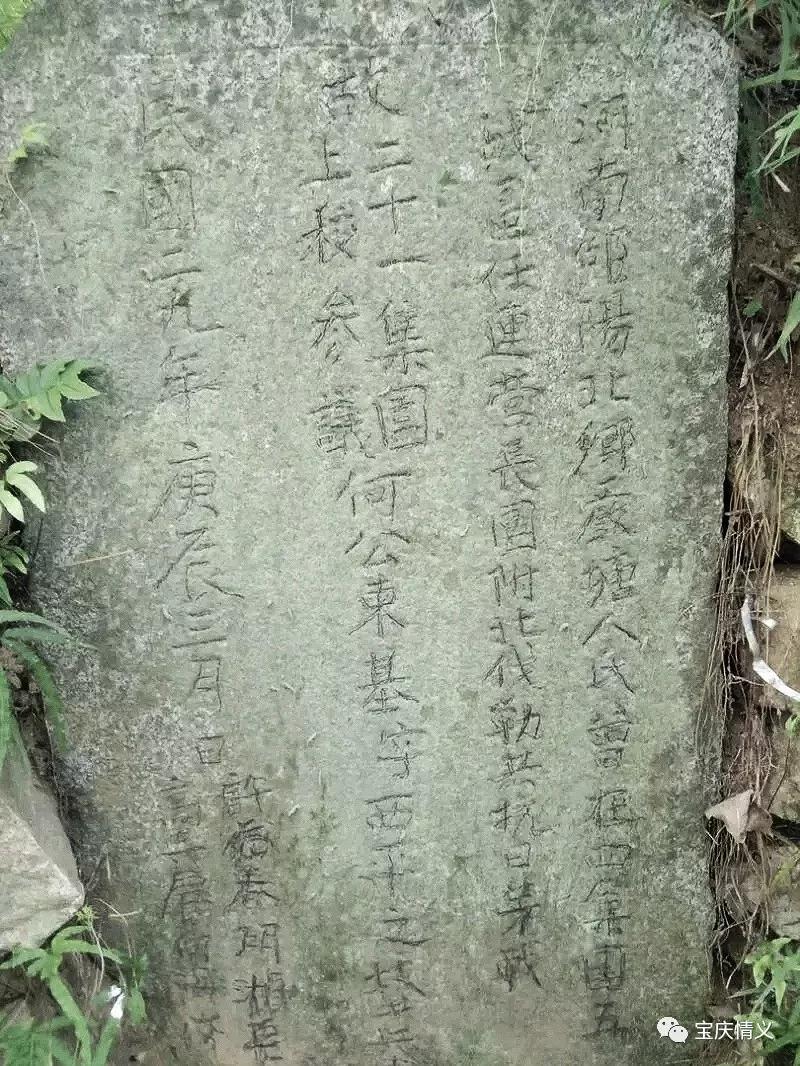 河南邵陽北鄉㕓塘人氏曾在四集團五
戰區任連營長團附北伐勦共抗日等戰
故二十一集團何公東基字西平之墓
上校參議
民國二九年庚辰三月日
許 春 湘
宝庆情义